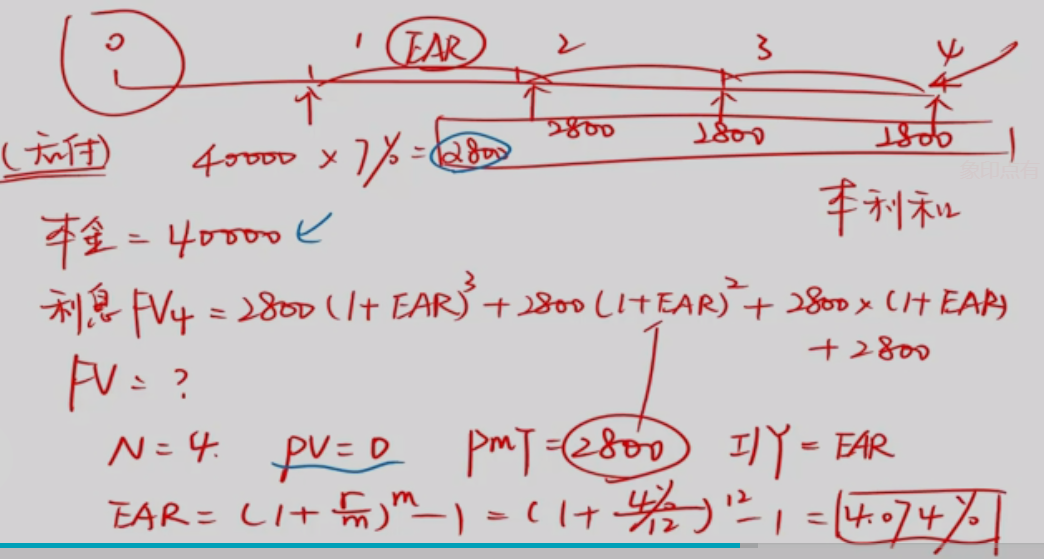 0 1 EAR 2 3 4
2800 2800 2800
40000 × 7% = 2800
本利和
本金 = 40000
利息 FV₄ = 2800 (1 + EAR)³ + 2800 (1 + EAR)² + 2800 × (1 + EAR)
+ 2800
FV = ?
N = 4. PV = 0 PMT = 2800 I/Y = EAR
EAR = (1 + r/m)^m - 1 = (1 + 4%/12)^12 - 1 = 4.074%